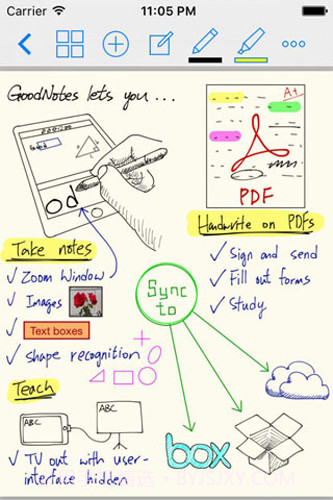 Carrier 11:05 PM
GoodNotes lets you...
A+
od
PDF
Handwrite on PDFs
✓ Sign and send
✓ Fill out forms
✓ Study
Take notes
✓ Zoom Window
✓ Images
✓ Text boxes
✓ shape recognition
Sync
to
Teach
ABC
ABC
✓ TV out with user-
interface hidden
box